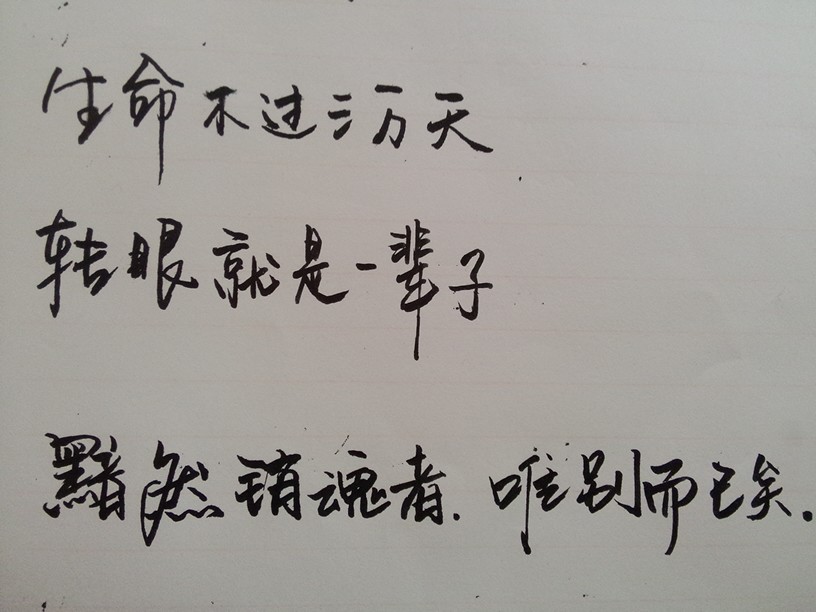 生命不过三万天
转眼就是一辈子
黯然销魂者.唯别而已矣.